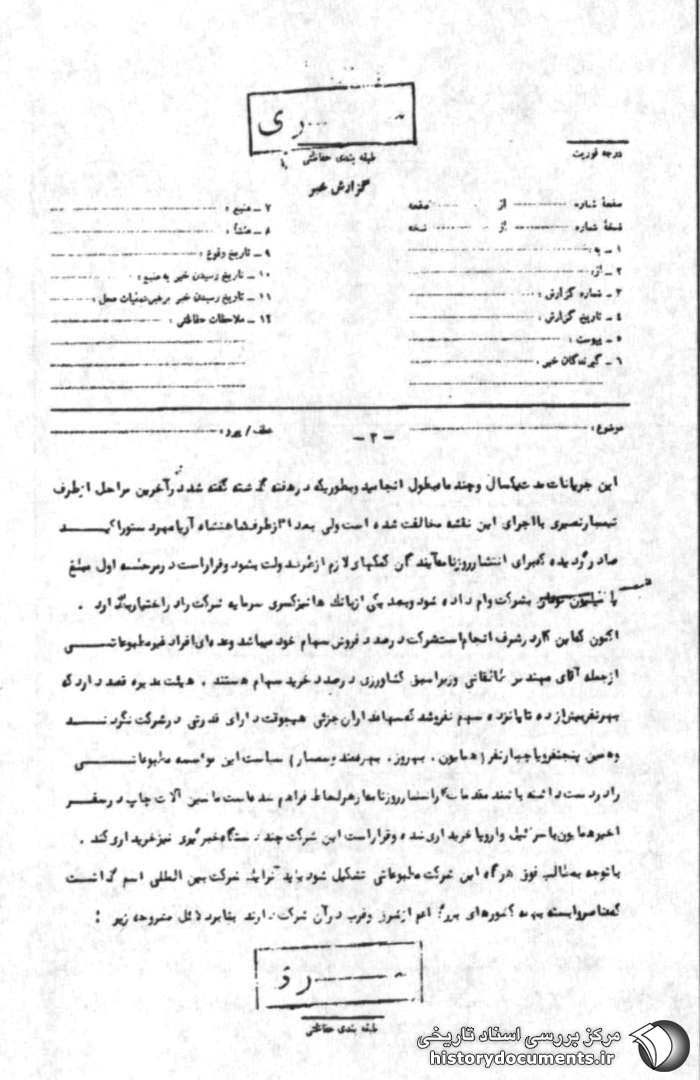 سری
طبقه بندی حفاظتی
درجه فوریت
گزارش خبر
صفحهٔ شماره از صفحه
نسخهٔ شماره از نسخه
۱ ـ به :
۲ ـ از :
۳ ـ شماره گزارش :
۴ ـ تاریخ گزارش :
۵ ـ پیوست :
۶ ـ گیرندگان خبر :
۷ ـ منبع :
۸ ـ منشأ :
۹ ـ تاریخ وقوع :
۱۰ ـ تاریخ رسیدن خبر به منبع :
۱۱ ـ تاریخ رسیدن خبر به رهبر عملیات محل :
۱۲ ـ ملاحظات حفاظتی :
موضوع :
عطف / پیرو :
ـ ۲ ـ
این جریانات مدت یکسال و چند ماه بطول انجامید و بطوریکه در هفته گذشته گفته شد در آخرین مراحل از طرف
تیمسار نصیری با اجرای این نقشه مخالفت شده است ولی بعدا از طرف شاهنشاه آریامهر دستور اکید
صادر گردیده که برای انتشار روزنامه آیندگان کمکهای لازم از طرف دولت بشود و قرار است در مرحله اول مبلغ
میلیون تومان بشرکت وام داده شود و بعد یکی از بانک ها نیز کسری سرمایه شرکت را در اختیار بگذارد .
اکنون که این کار در شرف انجام است شرکت در صدد فروش سهام خود میباشد و عده ای افراد غیر مطبوعاتی
از جمله آقای مهندس طالقانی وزیر اسبق کشاورزی در صدد خرید سهام هستند . هیئت مدیره قصد دارد که
بهر نفر بیش از ده تا پانزده سهم نفروشد که سهامداران جزئی هیچوقت دارای قدرتی در شرکت نگردند
و همین پنج نفر و یا چهار نفر ( همایون . بهروز . بهره مند و سمسار ) سیاست این موسسه مطبوعاتی
را در دست داشته باشند مقدمات کار انتشار روزنامه از هر لحاظ فراهم شده است ماشین آلات چاپ در سفر
اخیر همایون باسرائیل و اروپا خریداری شده و قرار است این شرکت چند دستگاه خبرگیری نیز خریداری کند .
با توجه بمطالب فوق هرگاه این شرکت مطبوعاتی تشکیل شود باید شرکت بین المللی اسم گذاشت
که عناصر وابسته بهمه کشورهای بزرگ اعم از شرق و غرب در آن شرکت دارند بنابر دلائل مشروحه زیر :
سری
طبقه بندی حفاظتی
مرکز بررسی اسناد تاریخی
historydocuments.ir